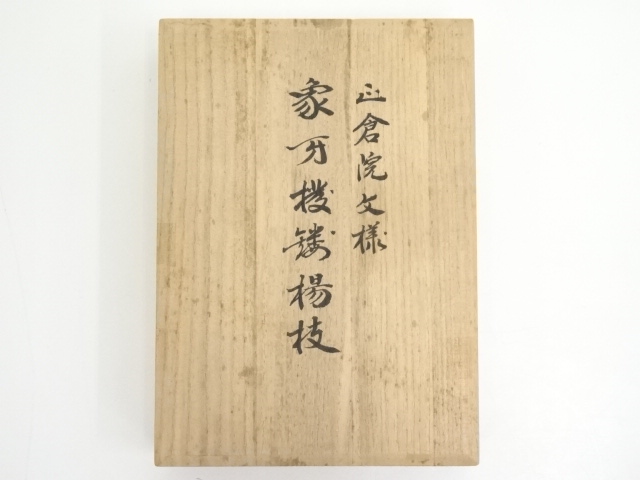 正倉院文様
象牙撥鏤楊枝